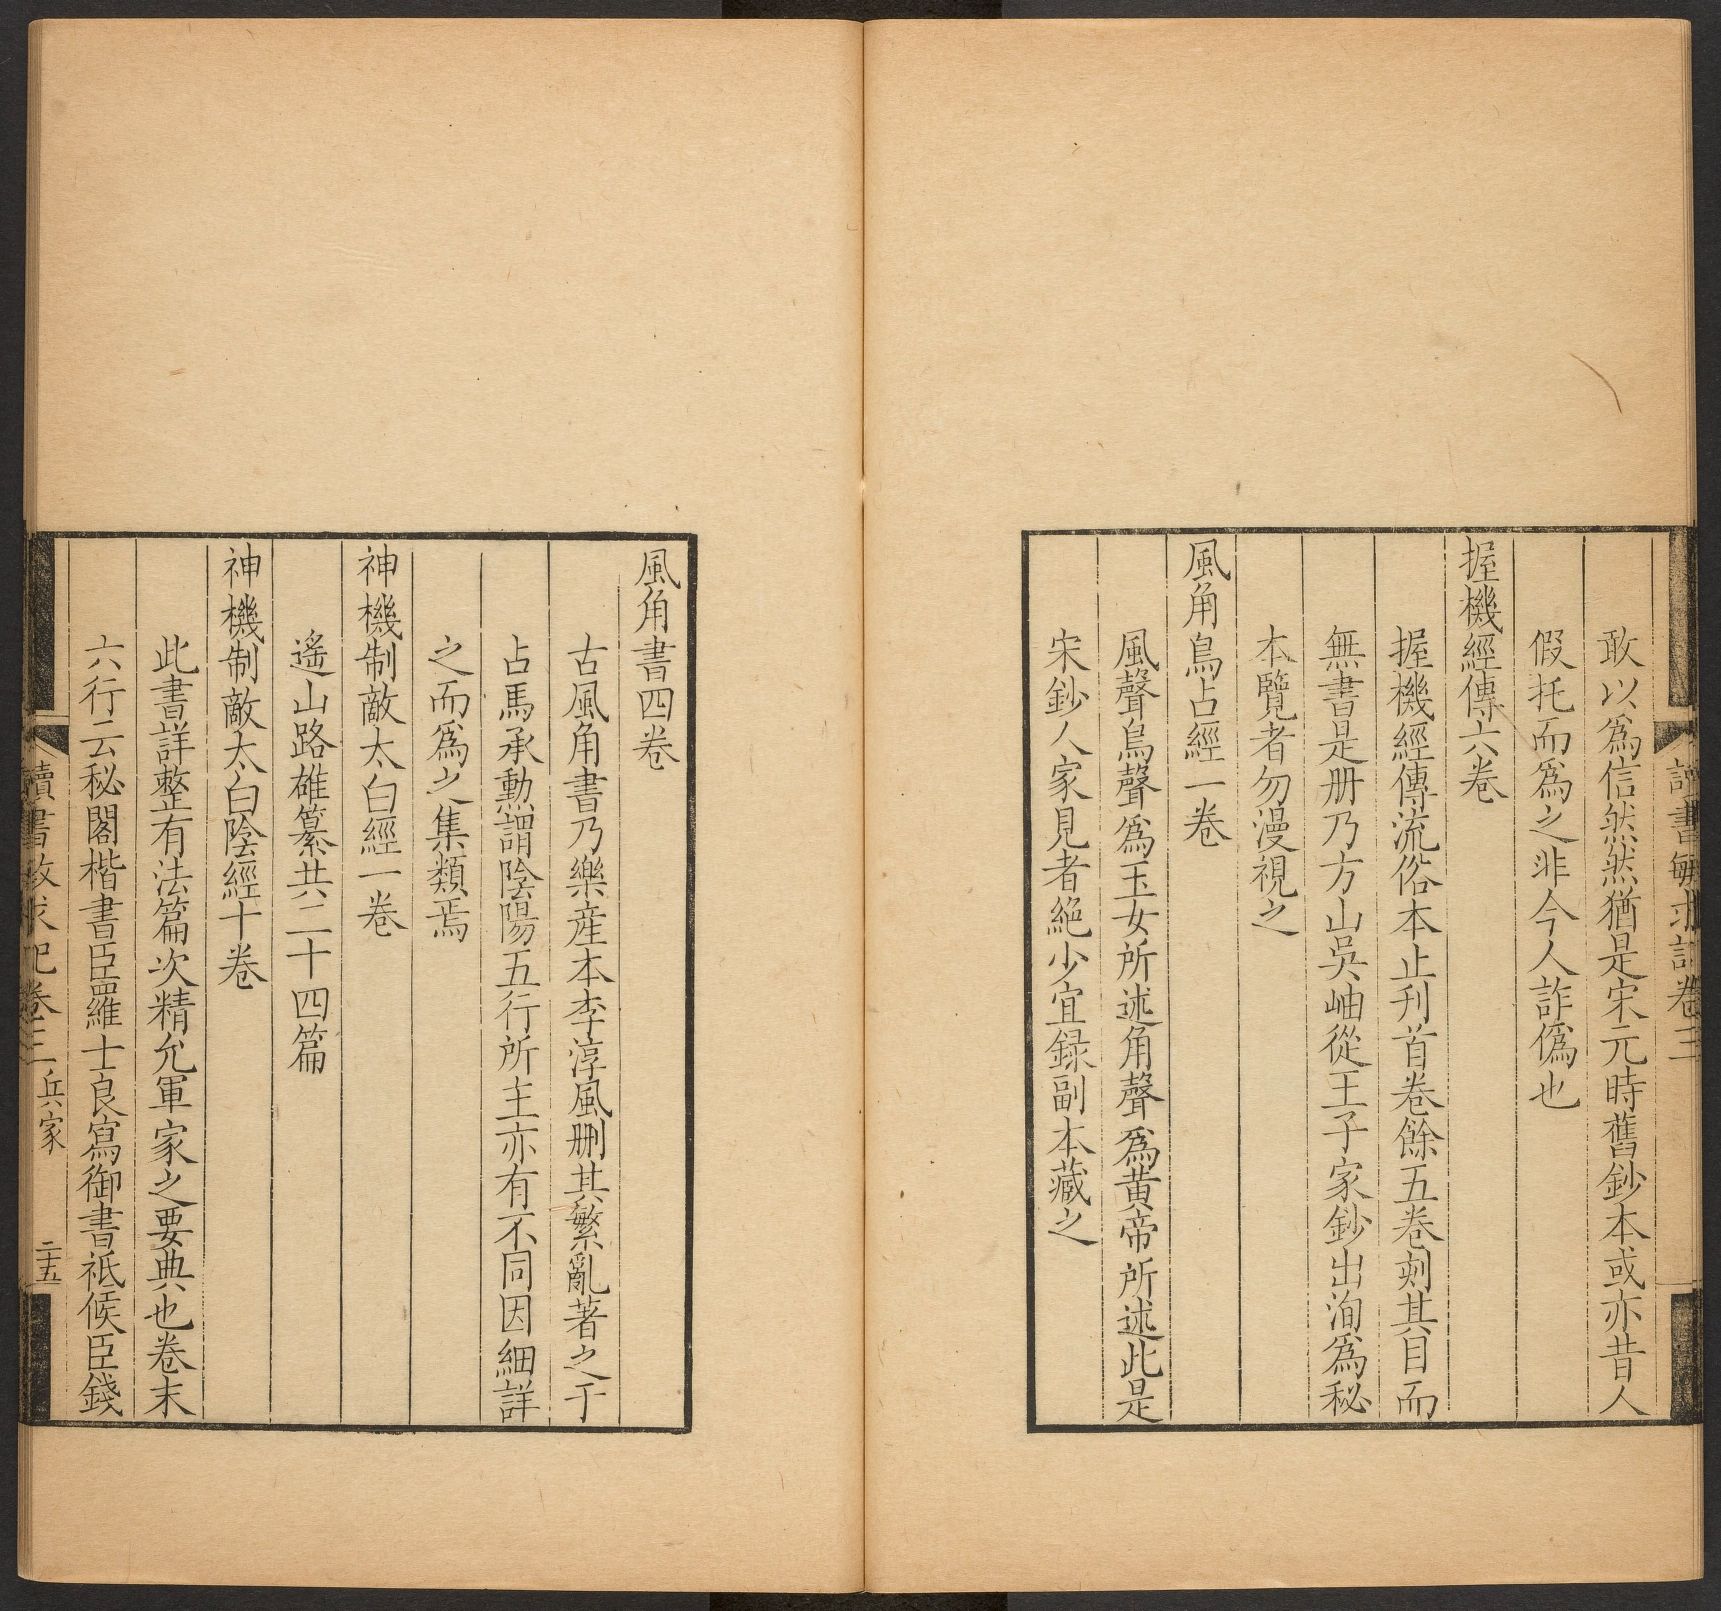 敢以爲信然然猶是宋元時舊鈔本或亦昔人
假托而爲之非今人詐僞也
握機經傳六卷
握機經傳流俗本止刊首卷餘五卷刻其目而
無書是册乃方山吳岫從王子家鈔出洵爲秘
本覽者勿漫視之
風角鳥占經一卷
風聲鳥聲爲玉女所述角聲爲黃帝所述此是
宋鈔人家見者絕少宜録副本藏之
風角書四卷
古風角書乃樂産本李淳風删其繁亂著之于
占馬承勲謂陰陽五行所主亦有不同因細詳
之而爲之集類焉
神機制敵太白經一卷
遙山路雄纂共二十四篇
神機制敵太白陰經十卷
此書詳整有法篇次精允軍家之要典也卷末
六行云秘閣楷書臣羅士良寫御書祗候臣錢
讀書敏求記卷三 兵家 二十五